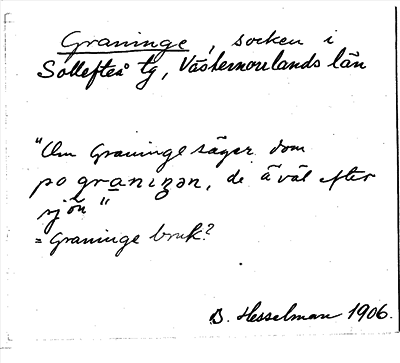 Graninge, socken i
Sollefteå tg, Västernorrlands län
"Om Graninge säger dom
po granizən, de ä väl efter
sjön"
= Graninge bruk?
B. Hesselman 1906.